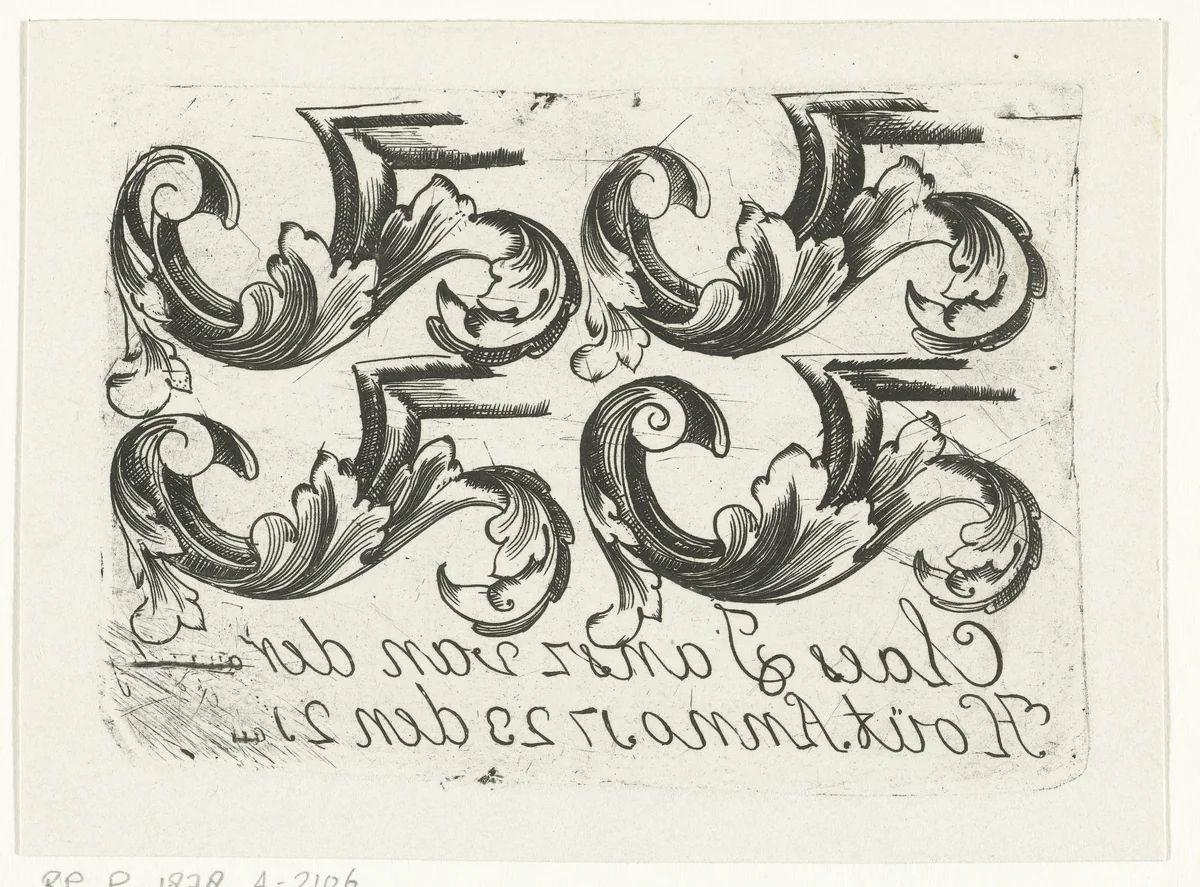 Claes Jansz van der
Hoüt Anno 1723 den 21
RP P 1878 A-2106